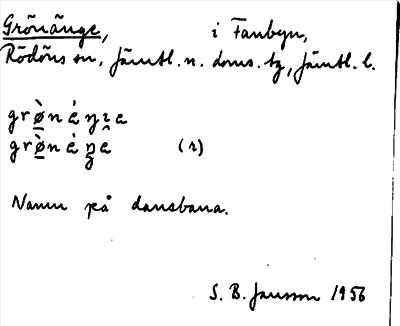 Grönänge, i Fanbyn,
Rödöns sn, Jämtl. n. doms. tg, Jämtl. l.
(r)
Namn på dansbana.
S. B. Jansson 1956